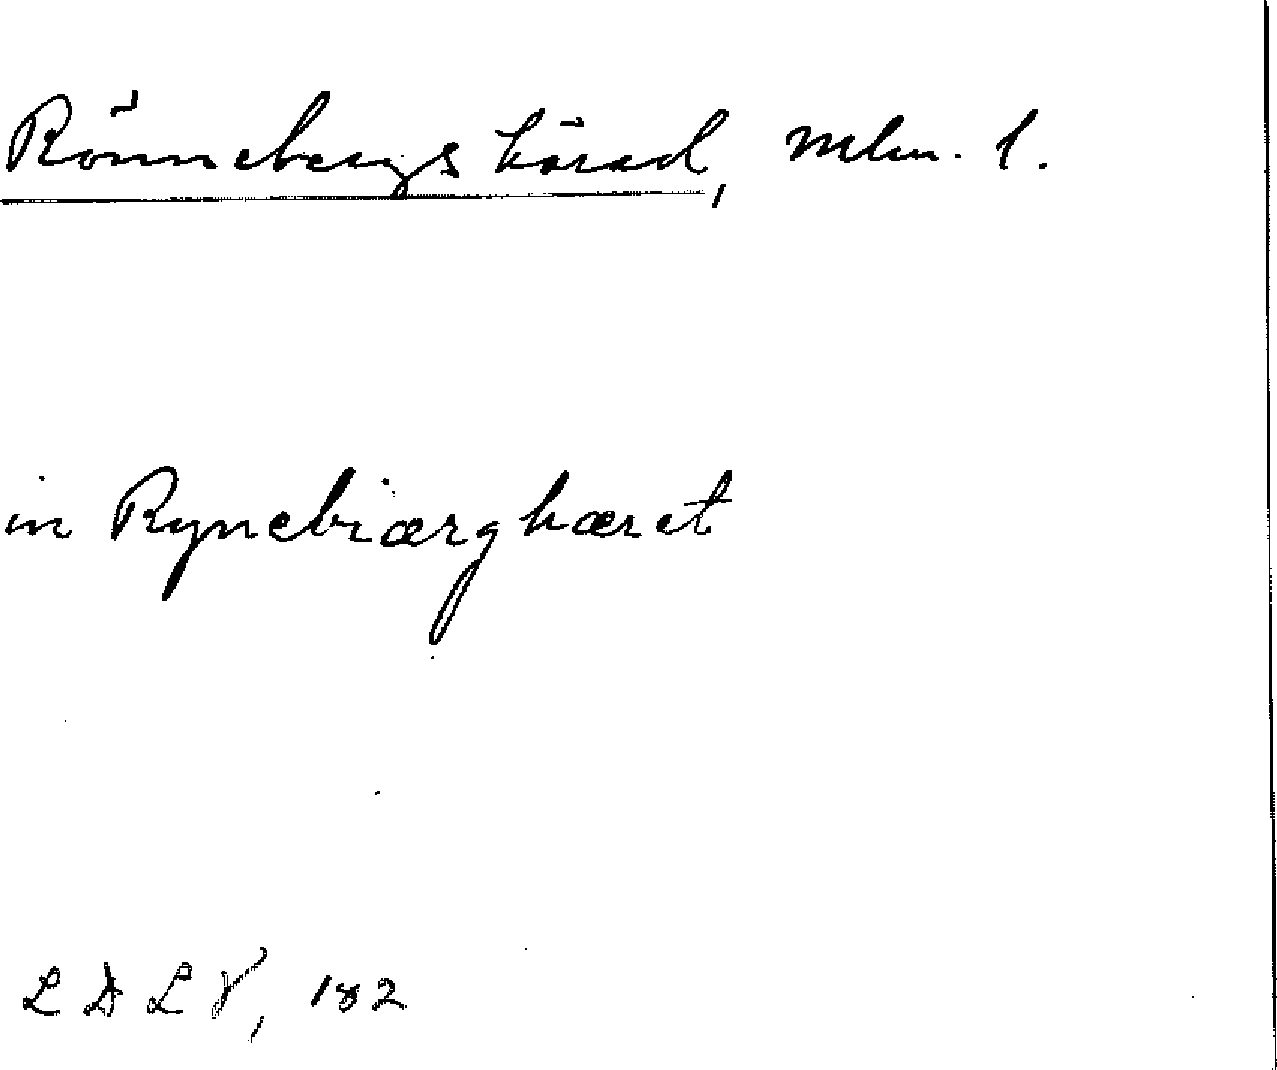 Rönnebergs härad, Mlm. l.
in Rynebiærghæret
LDLV, 182